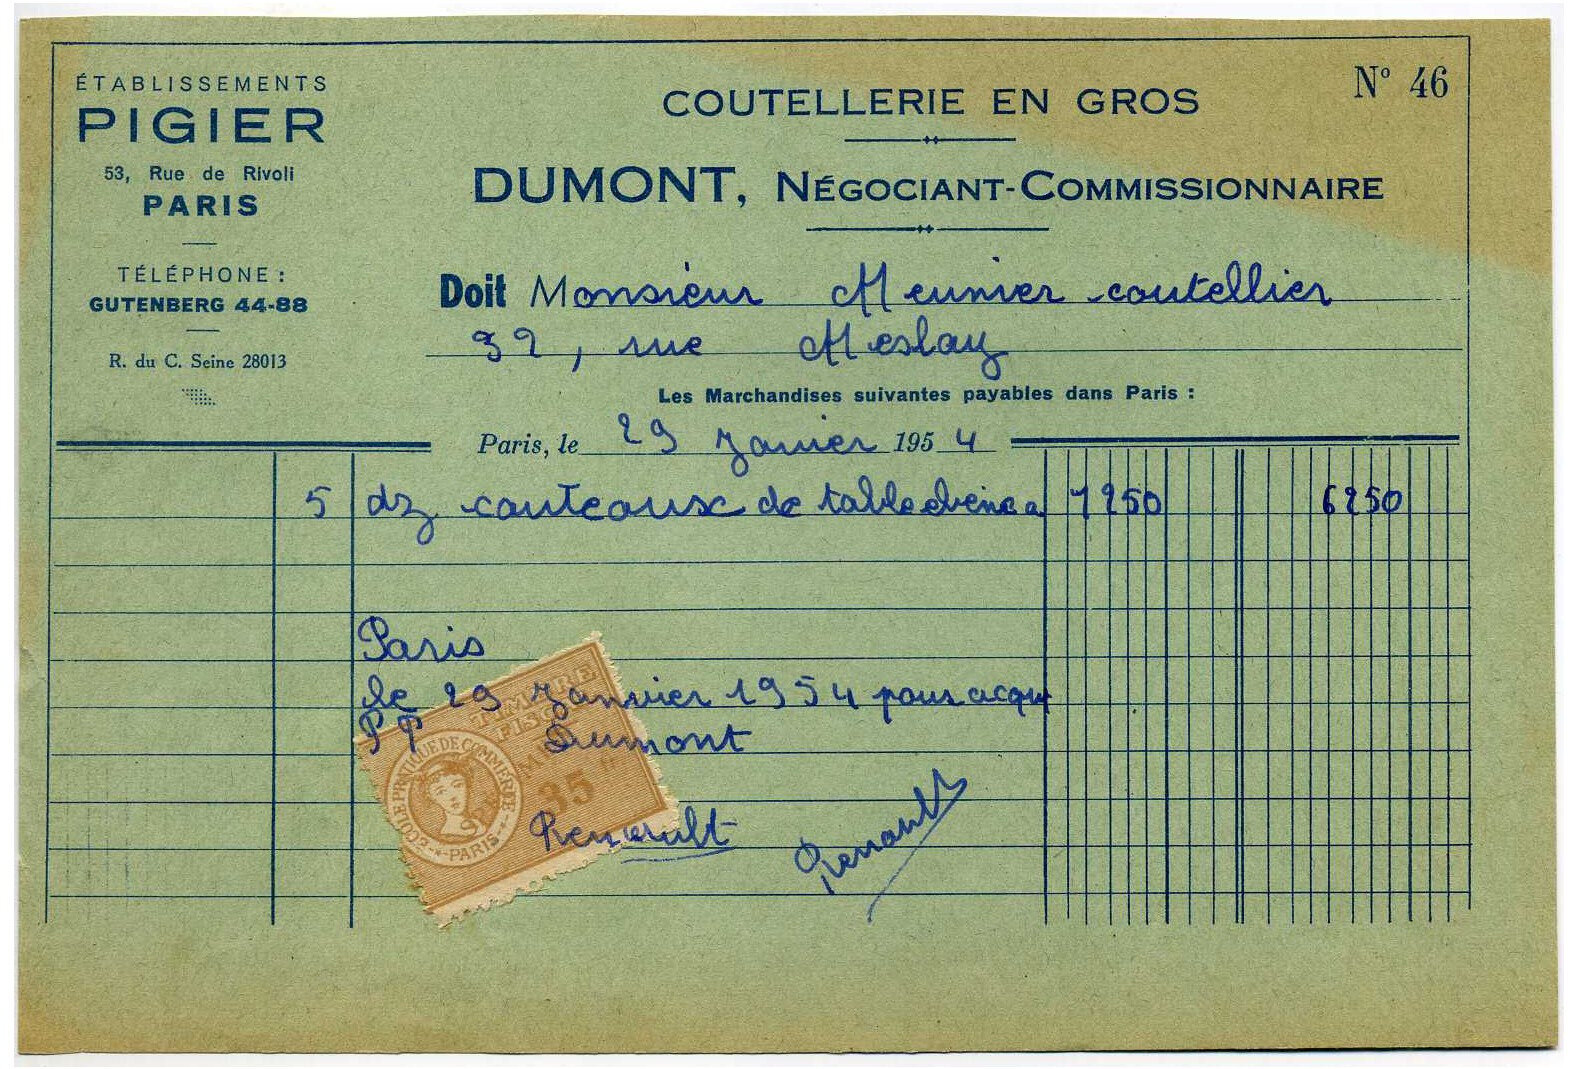 ÉTABLISSEMENTS
PIGIER
53, Rue de Rivoli
PARIS
TÉLÉPHONE :
GUTENBERG 44-88
R. du C. Seine 28013
Nº 46
COUTELLERIE EN GROS
DUMONT, NÉGOCIANT-COMMISSIONNAIRE
Doit Monsieur Meunier coutellier
32, rue Meslay
Les Marchandises suivantes payables dans Paris :
Paris, le 29 Janvier 1954
5 dz couteaux de table ebène a 1250 6250
Paris
le 29 Janvier 1954 pour acquit
PP Dumont
Renault
Renault
TIMBRE
FISCAL
35
ÉCOLE PRATIQUE DE COMMERCE
PARIS